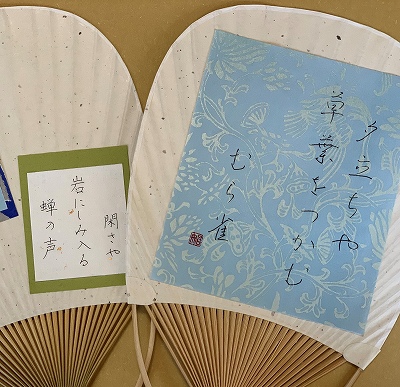 夕立ちや
草葉をつかむ
むら雀
閑さや
岩にしみ入る
蝉の声